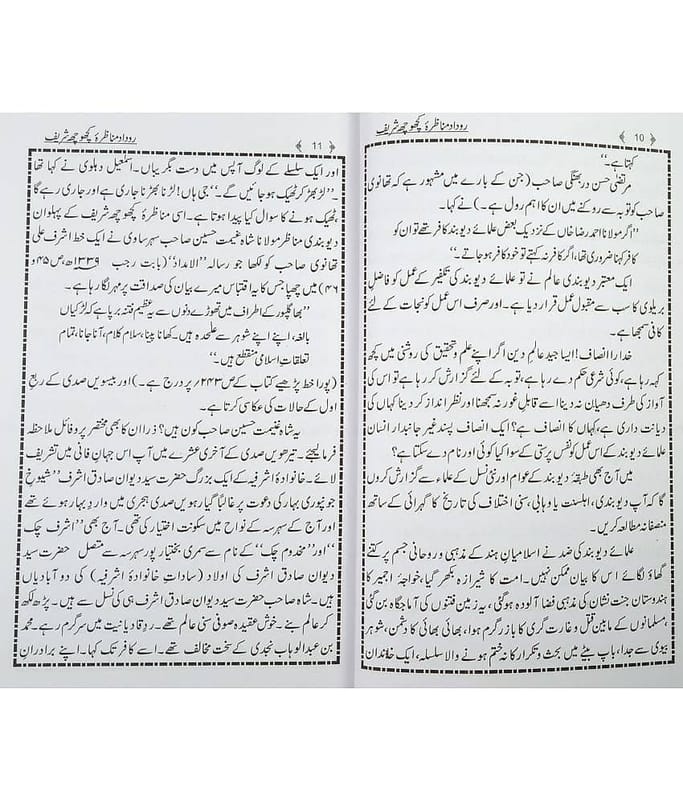 رودادمناظرۂ کچھوچھہ شریف
﴿ 10 ﴾
کہتا ہے۔‘‘
مرتضیٰ حسن دربھنگی صاحب (جن کے بارے میں مشہور ہے کہ تھانوی
صاحب کو توبہ سے روکنے میں ان کا اہم رول ہے۔) نے کہا۔
’’اگر مولانا احمد رضا خاں کے نزدیک بعض علمائے دیوبند کافر تھے تو ان کو
کافر کہنا ضروری تھا، اگر کافر نہ کہتے تو خود کافر ہو جاتے۔‘‘
ایک معتبر دیوبندی عالم نے تو علمائے دیوبند کی تکفیر کے عمل کو فاضل
بریلوی کا سب سے مقبول عمل قرار دیا ہے۔ اور صرف اس عمل کو نجات کے لئے
کافی سمجھا ہے۔
خدارا انصاف! ایسا جید عالم دین اگر اپنے علم و تحقیق کی روشنی میں کچھ
کہہ رہا ہے، کوئی شرعی حکم دے رہا ہے، توبہ کے لئے گزارش کر رہا ہے تو اس کی
آواز کی طرف دھیان نہ دینا اسے قابل غور نہ سمجھنا اور نظر انداز کر دینا کہاں کی
دیانت داری ہے، کہاں کا انصاف ہے؟ ایک انصاف پسند غیر جانبدار انسان
علمائے دیوبند کے اس عمل کو نفس پرستی کے سوا کیا کوئی اور نام دے سکتا ہے؟
میں آج بھی طبقۂ دیوبند کے عوام اور نئی نسل کے علماء سے گزارش کروں
گا کہ آپ دیوبندی، اہلسنت یا وہابی، سنی اختلاف کی تاریخ کا گہرائی کے ساتھ
منصفانہ مطالعہ کریں۔
علمائے دیوبند کی ضد نے اسلامیان ہند کے مذہبی و روحانی جسم پر کتنے
گھاؤ لگائے اس کا بیان ممکن نہیں۔ امت کا شیرازہ بکھر گیا، خواجۂ اجمیر کا
ہندوستان جنت نشان کی مذہبی فضا آلودہ ہو گئی، یہ زمین فتنوں کی آماجگاہ بن گئی
،مسلمانوں کے مابین قتل و غارت گری کا بازار گرم ہوا، بھائی بھائی کا دشمن، شوہر
بیوی سے جدا، باپ بیٹے میں بحث و تکرار کا نہ ختم ہونے والا سلسلہ، ایک خاندان
رودادمناظرۂ کچھوچھہ شریف
﴿ 11 ﴾
اور ایک سلسلے کے لوگ آپس میں دست بگریباں۔ اسمٰعیل دہلوی نے کہا تھا
۔’’لڑ بھڑ کر ٹھیک ہو جائیں گے۔‘‘ جی ہاں! لڑنا بھڑنا جاری ہے اور جاری رہے گا
،ٹھیک ہونے کا سوال کیا پیدا ہوتا ہے۔ اسی مناظرۂ کچھوچھہ شریف کے پہلوان
دیوبندی مناظر مولانا شاہ غنیمت حسین صاحب سہرساوی نے ایک خط اشرف علی
تھانوی صاحب کو لکھا جو رسالہ ’’الامداد‘‘ (بابت رجب ۱۳۳۹ھ ص ۴۵ و
۴۶) میں چھپا جس کا یہ اقتباس میرے بیان کی صداقت پر مہر لگا رہا ہے۔
’’بھاگلپور کے اطراف میں تھوڑے دنوں سے یہ عظیم فتنہ برپا ہے کہ لڑکیاں
بالغہ، اپنے اپنے شوہر سے علٰحدہ ہیں۔ کھانا پینا، سلام کلام، آنا جانا، تمام
تعلقات اسلامی منقطع ہیں۔‘‘
(پورا خط پڑھیے کتاب کے ص ۲۳۳ پر درج ہے۔) اور بیسویں صدی کے ربع
اول کے حالات کی عکاسی کرتا ہے۔
یہ شاہ غنیمت حسین صاحب کون ہیں؟ ذرا ان کا بھی مختصر پروفائل ملاحظہ
فرما لیجئے۔ تیرھویں صدی کے آخری عشرے میں آپ اس جہان فانی میں تشریف
لائے۔ خانوادۂ اشرفیہ کے ایک بزرگ حضرت سید دیوان صادق اشرف ’’شیوخ
جونپوری بہار کی دعوت پر غالبا گیارہویں صدی ہجری میں وارد بہار ہوئے تھے
اور آج کے سہرسہ کے نواح میں سکونت اختیار کی تھی۔ آج بھی ’’اشرف چک
‘‘اور ’’مخدوم چک‘‘ کے نام سے سمری بختیار پور سہرسہ سے متصل حضرت سید
دیوان صادق اشرف کی اولاد (سادات خانوادۂ اشرفیہ) کی دو آبادیاں
ہیں۔ شاہ صاحب حضرت سید دیوان صادق اشرف ہی کی نسل سے ہیں۔ پڑھ لکھ
کر عالم بنے۔ خوش عقیدہ صوفی سنی عالم تھے۔ رد قادیانیت میں سرگرم رہے۔ محمد
بن عبدالوہاب نجدی کے سخت مخالف تھے۔ اسے کافر تک کہا۔ اپنے برادران